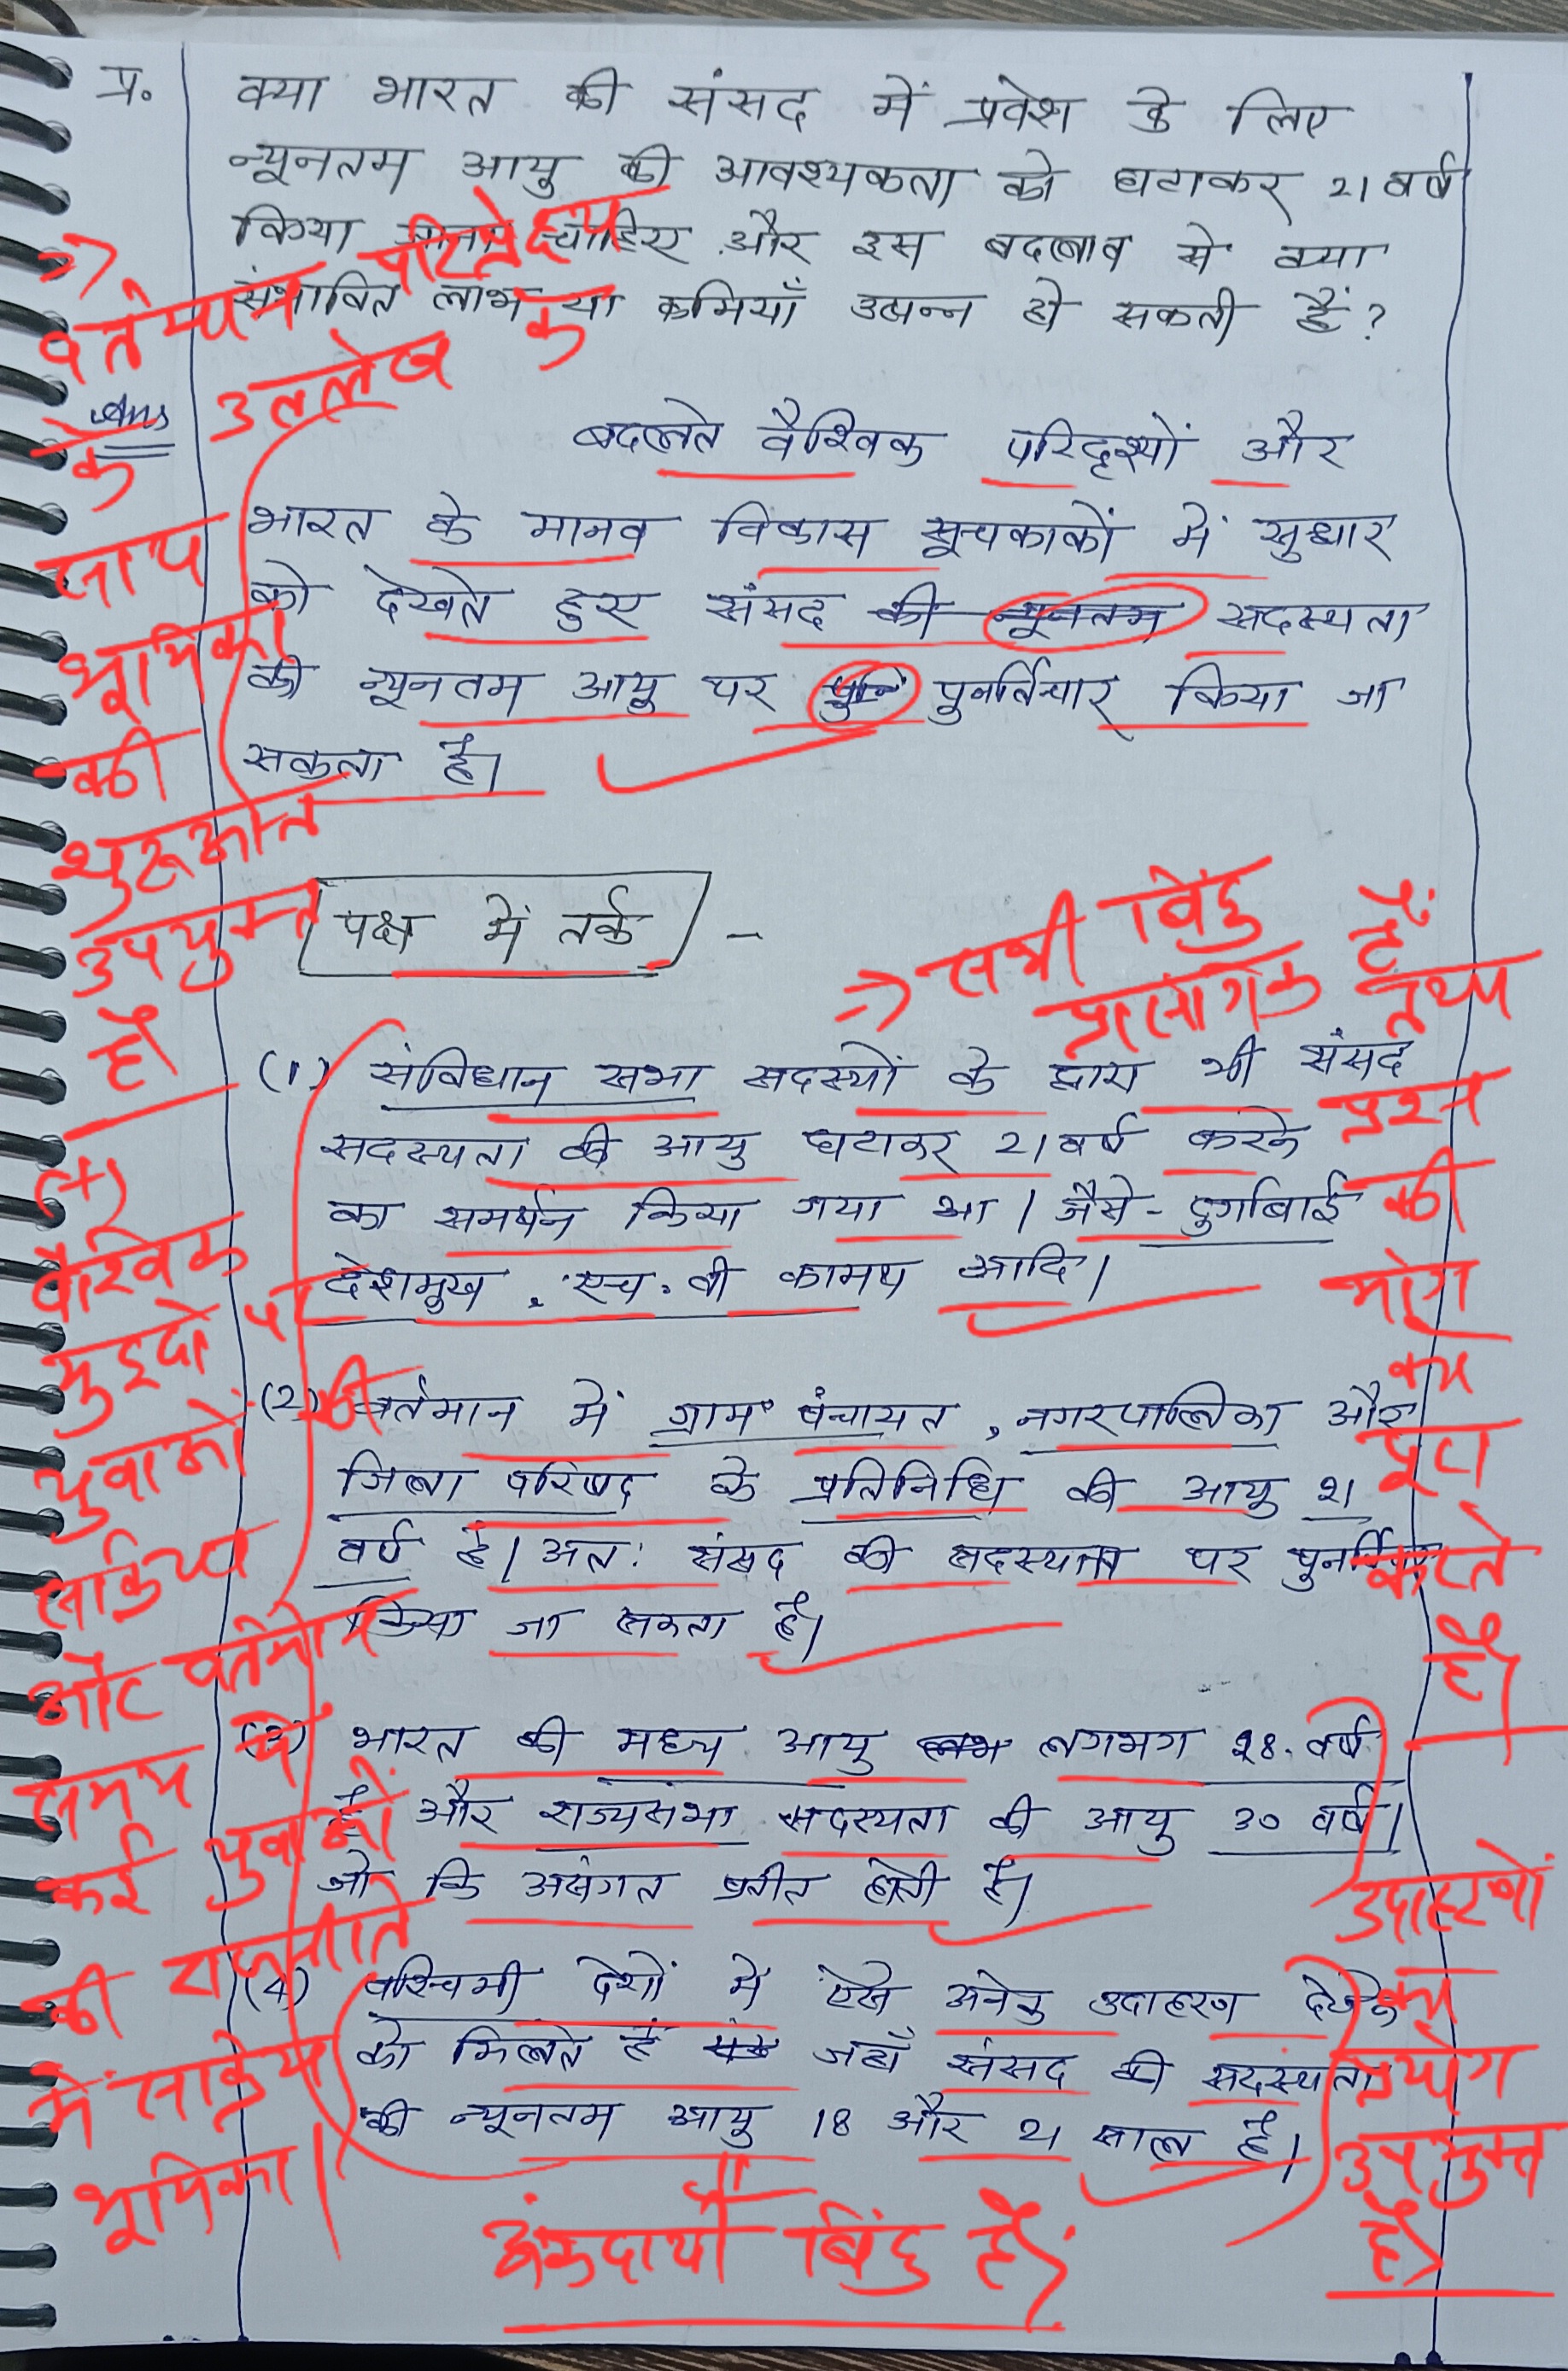 प्र. क्या भारत की संसद में प्रवेश के लिए
न्यूनतम आयु की आवश्यकता को घटाकर 21 वर्ष
किया जाना चाहिए और इस बदलाव से क्या
संभावित लाभ या कमियाँ उत्पन्न हो सकती हैं?
=> वर्तमान परिप्रेक्ष्य
के उल्लेख
के
साथ
भूमिका
की
शुरूआत
उपयुक्त
है।
Ans बदलते वैश्विक परिदृश्यों और
भारत के मानव विकास सूचकाकों में सुधार
को देखते हुए संसद की न्यूनतम सदस्यता
की न्यूनतम आयु पर पुनर्विचार किया जा
सकता है।
पक्ष में तर्क -
=> सभी बिंदु
प्रासंगिक हैं
तथा
प्रश्न
की
मांग
को
पूरा
करते
हैं।
(1) संविधान सभा सदस्यों के द्वारा भी संसद
सदस्यता की आयु घटाकर 21 वर्ष करने
का समर्थन किया गया था। जैसे - दुर्गाबाई
देशमुख, एच. वी कामथ आदि।
(2) वर्तमान में ग्राम पंचायत, नगरपालिका और
जिला परिषद के प्रतिनिधि की आयु 21
वर्ष है। अतः संसद की सदस्यता पर पुनर्विचार
किया जा सकता है।
(3) भारत की मध्य आयु लगभग 28. वर्ष
है और राज्यसभा सदस्यता की आयु 30 वर्ष।
जो कि असंगत प्रतीत होती है।
(4) पश्चिमी देशों में ऐसे अनेक उदाहरण देखने
को मिलते हैं जहाँ संसद की सदस्यता
की न्यूनतम आयु 18 और 21 साल है।
(+)
वैश्विक
मुद्दों पर
युवाओं की
सक्रियता
और वर्तमान
समय में
कई युवाओं
की राजनीति
में सक्रिय
भूमिका।
उदाहरणों
का
प्रयोग
उपयुक्त
है।
अंकदायी बिंदु है।